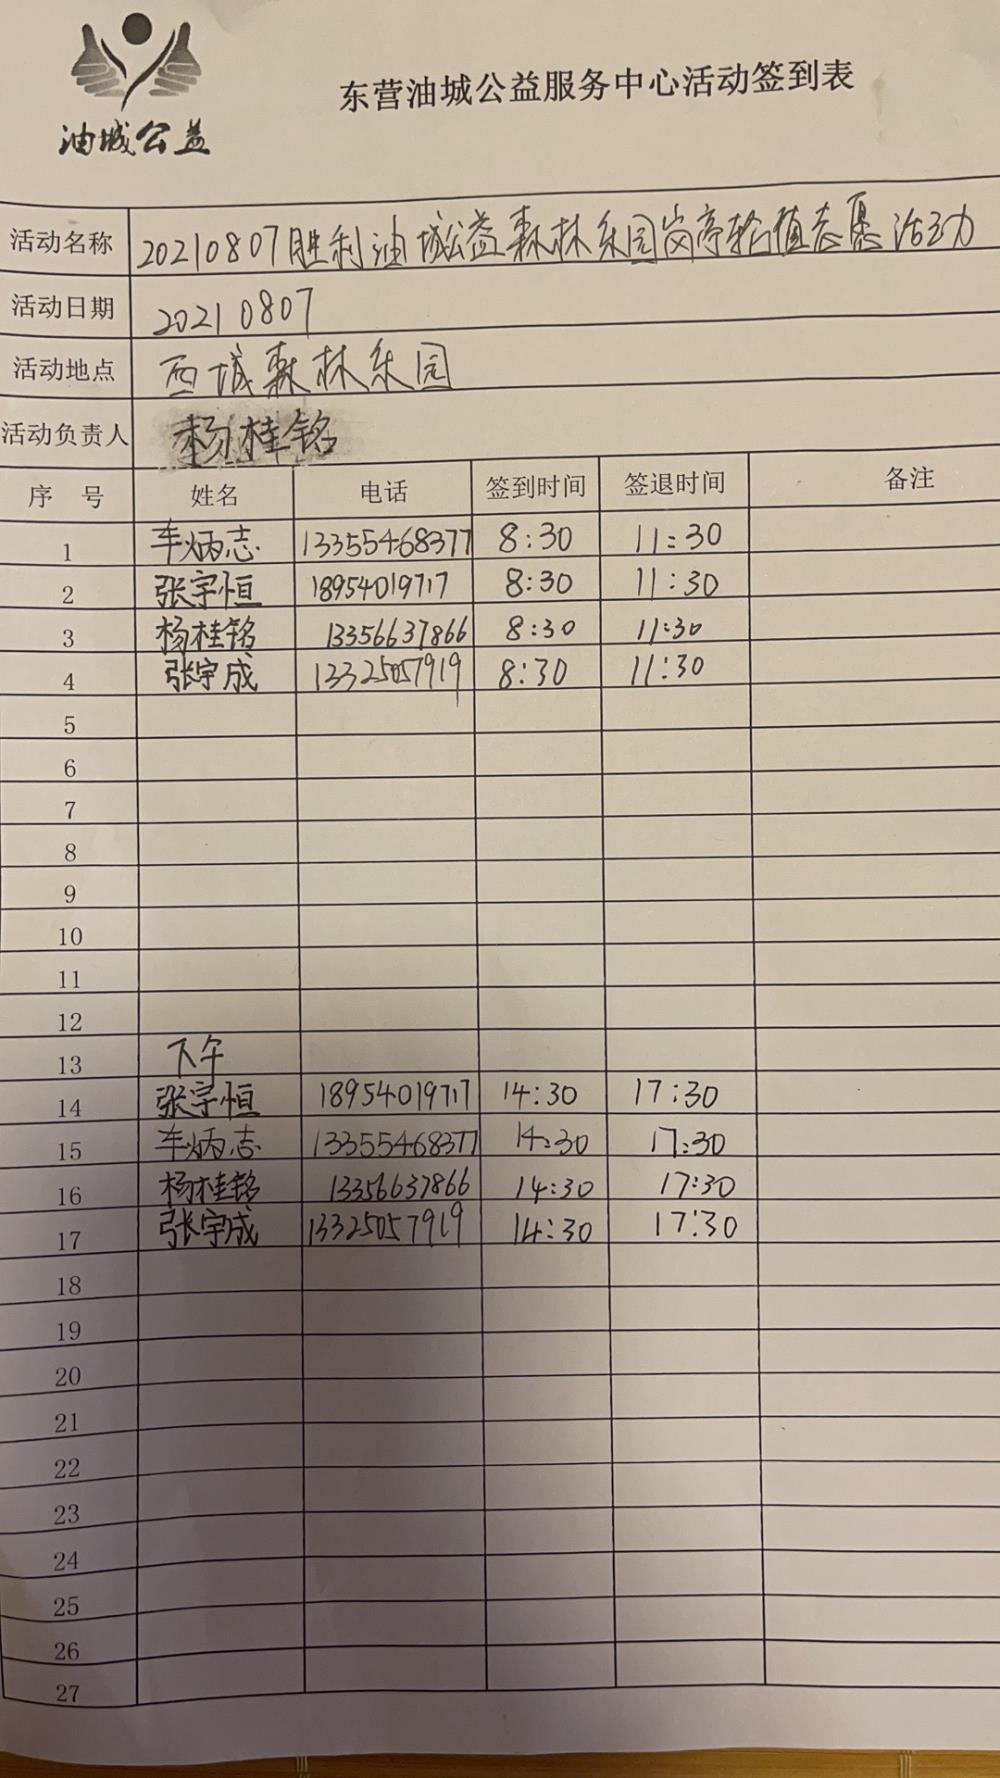 油城公益
东营油城公益服务中心活动签到表
活动名称 20210807胜利油城公益森林乐园岗亭轮值志愿活动
活动日期 20210807
活动地点 西城森林乐园
活动负责人 杨桂铭
序号 姓名 电话 签到时间 签退时间 备注
1 车炳志 13355468377 8:30 11:30
2 张宇恒 18954019717 8:30 11:30
3 杨桂铭 13356637866 8:30 11:30
4 张宇成 13325057919 8:30 11:30
5
6
7
8
9
10
11
12
13 下午
14 张宇恒 18954019717 14:30 17:30
15 车炳志 13355468377 14:30 17:30
16 杨桂铭 13356637866 14:30 17:30
17 张宇成 13325057919 14:30 17:30
18
19
20
21
22
23
24
25
26
27